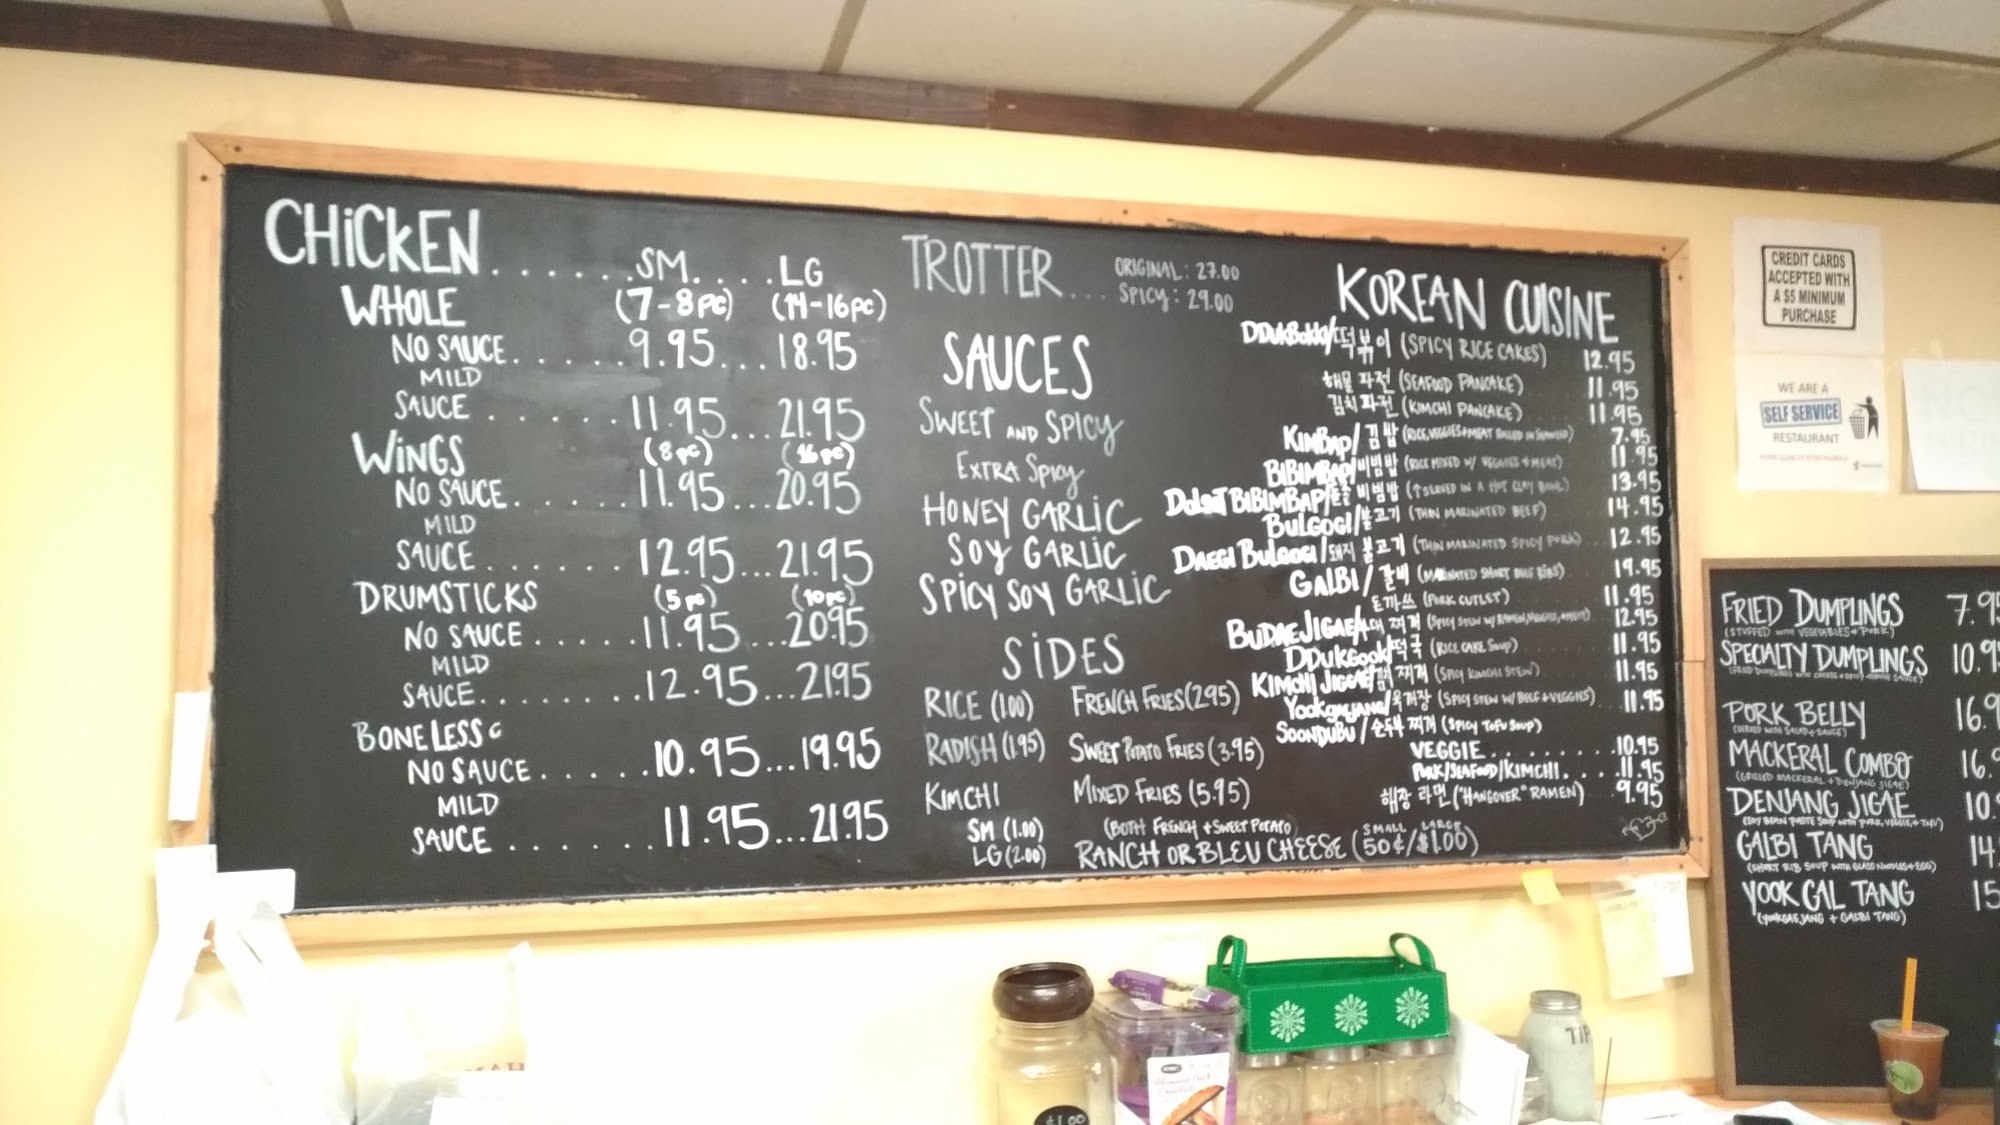 CHICKEN......SM.....LG
WHOLE (7-8pc) (14-16pc)
NO SAUCE......9.95...18.95
MILD
SAUCE......11.95...21.95
WINGS (8pc) (16pc)
NO SAUCE......11.95...20.95
MILD
SAUCE.......12.95...21.95
DRUMSTICKS (5pc) (10pc)
NO SAUCE.....11.95...20.95
MILD
SAUCE........12.95...21.95
BONELESS
NO SAUCE.....10.95...19.95
MILD
SAUCE.......11.95...21.95
TROTTER... ORIGINAL: 27.00
SPICY: 29.00
SAUCES
SWEET AND SPICY
EXTRA SPICY
HONEY GARLIC
SOY GARLIC
SPICY SOY GARLIC
SIDES
RICE (1.00) FRENCH FRIES (2.95)
RADISH (1.95) SWEET POTATO FRIES (3.95)
KIMCHI MIXED FRIES (5.95)
SM (1.00) (BOTH FRENCH + SWEET POTATO)
LG (2.00) RANCH OR BLEU CHEESE (50¢/$1.00)
SMALL LARGE
KOREAN CUISINE
DDUKBOKKI/떡볶이 (SPICY RICE CAKES) 12.95
해물 파전 (SEAFOOD PANCAKE) 11.95
김치 파전 (KIMCHI PANCAKE) 11.95
KIMBAP/김밥 (RICE, VEGGIES + MEAT ROLLED IN SEAWEED) 7.95
BIBIMBAP/비빔밥 (RICE MIXED W/ VEGGIES + MEAT) 11.95
DOLSOT BIBIMBAP/돌솥 비빔밥 (↑SERVED IN A HOT CLAY BOWL) 13.95
BULGOGI/불고기 (THIN MARINATED BEEF) 14.95
DAEGI BULGOGI/돼지 불고기 (THIN MARINATED SPICY PORK) 12.95
GALBI/갈비 (MARINATED SHORT BEEF RIBS) 19.95
돈까쓰 (PORK CUTLET) 11.95
BUDAE JIGAE/부대 찌개 (SPICY STEW W/ RAMEN, VEGGIES, + MEAT) 12.95
DDUKGOOK/떡국 (RICE CAKE SOUP) 11.95
KIMCHI JIGGAE/김치 찌개 (SPICY KIMCHI STEW) 11.95
YOOKGAEJANG/육개장 (SPICY STEW W/ BEEF + VEGGIES) 11.95
SOONDUBU/순두부 찌개 (SPICY TOFU SOUP)
VEGGIE..........10.95
PORK/SEAFOOD/KIMCHI.....11.95
해장 라면 ("HANGOVER" RAMEN) 9.95
CREDIT CARDS
ACCEPTED WITH
A $5 MINIMUM
PURCHASE
WE ARE A
SELF SERVICE
RESTAURANT
FRIED DUMPLINGS 7.95
(STUFFED WITH VEGETABLES + PORK)
SPECIALTY DUMPLINGS 10.9
PORK BELLY 16.9
(SERVED WITH SALAD + SAUCE)
MACKERAL COMBO 16.
(GRILLED MACKERAL + DENJANG JIGAE)
DENJANG JIGAE 10.
(SOY BEAN PASTE SOUP WITH PORK, VEGGIE, + TOFU)
GALBI TANG 14
(SHORT RIB SOUP WITH GLASS NOODLES + EGG)
YOOK GAL TANG 15
(YOOKGAEJANG + GALBI TANG)
TIP
$1.00